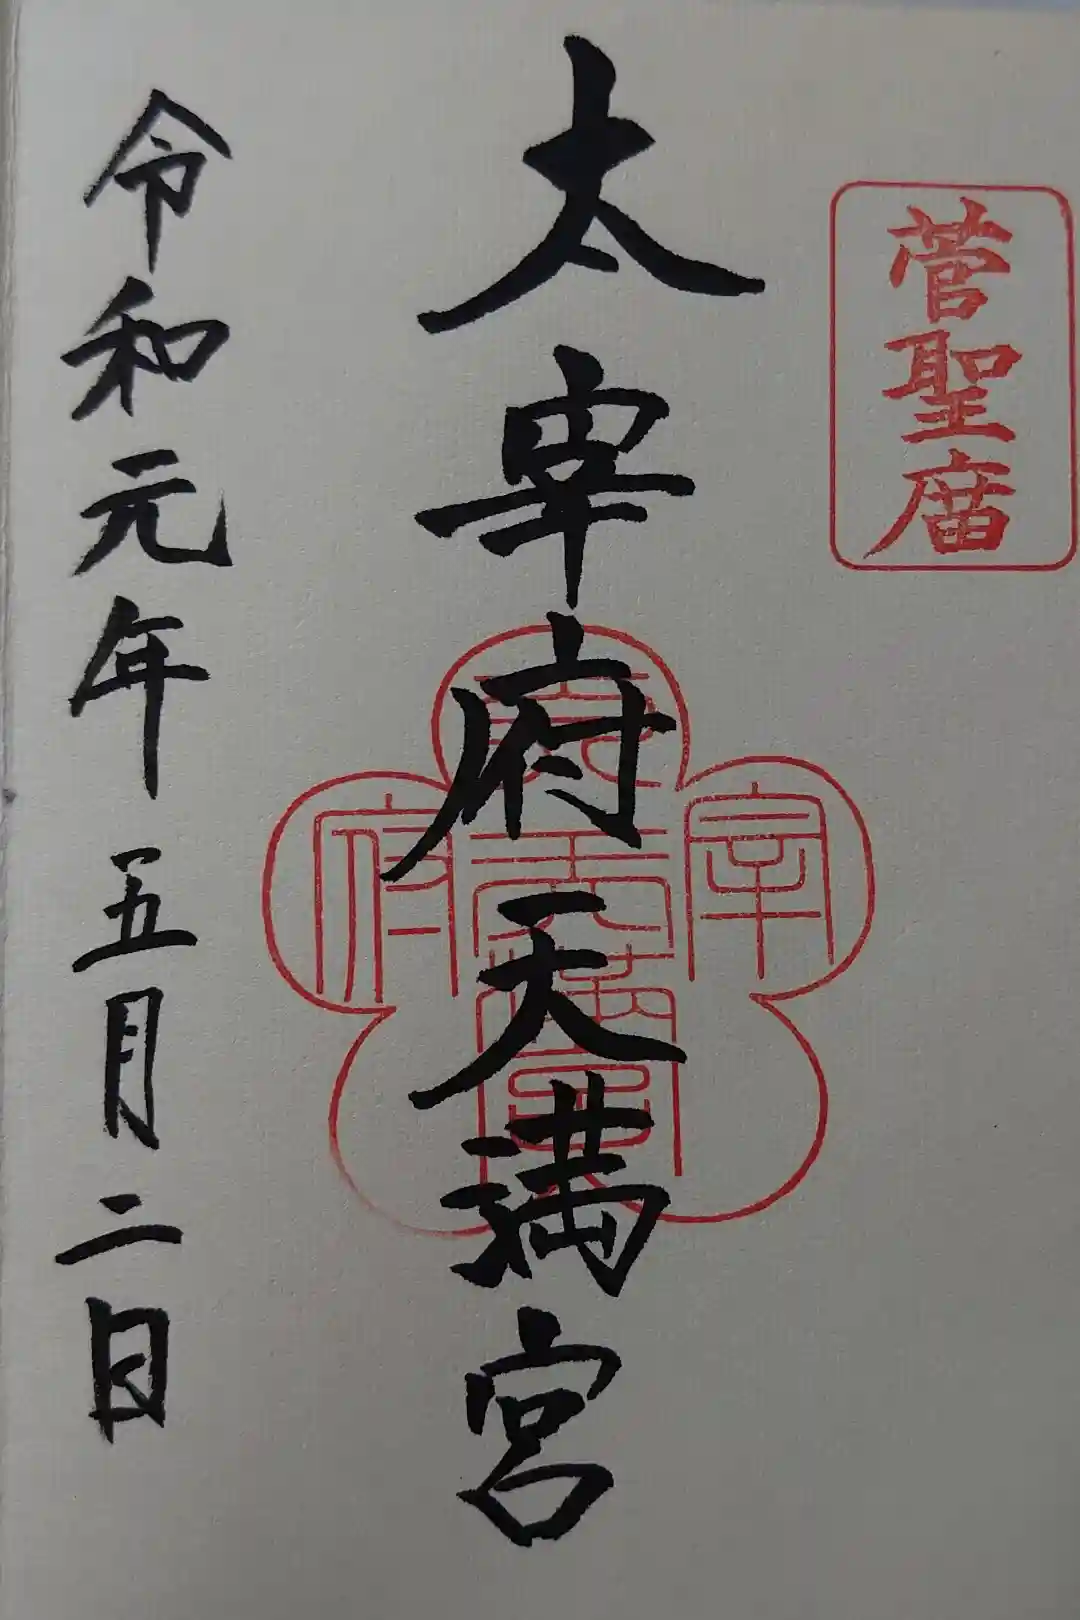 菅聖庿
太宰府天満宮
宰府
天満宮
令和元年五月二日